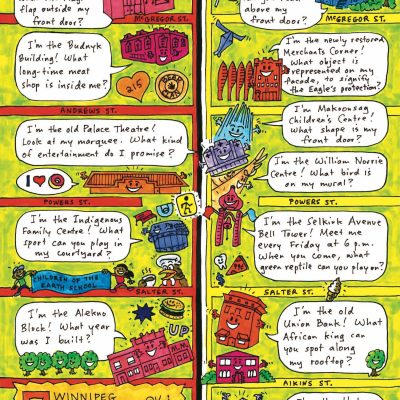 flap outside my
front door?
McGREGOR ST.
above my
front door?
McGREGOR ST.
I'm the Budnyk
Building! What
long-time meat
shop is inside me?
215
I'm the newly restored
Merchants Corner!
What object is
represented on my
facade, to signify
the Eagle's protection?
ANDREWS ST.
I'm the old Palace Theatre!
Look at my marquee. What kind
of entertainment do I promise?
I'm Makoonsag
Children's Centre!
What shape is my
front door?
I'm the William Norrie
Centre! What bird is
on my mural?
I
POWERS ST.
POWERS ST.
I'm the Indigenous
Family Centre! What
sport can you play in
my courtyard?
CHILDREN OF THE
EARTH SCHOOL
SALTER ST.
I'm the Selkirk Avenue
Bell Tower! Meet me
every Friday at 6 p.m.
When you come, what
green reptile can you play on?
SALTER ST.
I'm the Alekno
Block! What year
was I built?
UP
I'm the old
Union Bank! What
African king can
you spot along
my rooftop?
AIKINS ST.
WINNIPEG